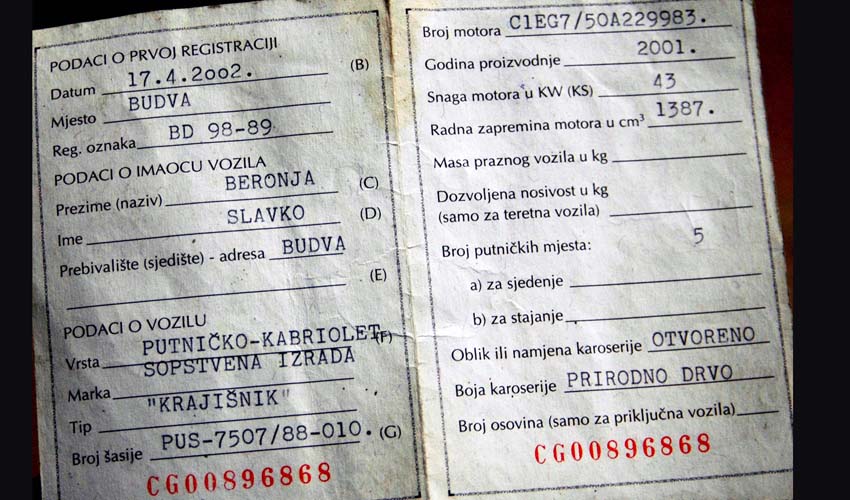 PODACI O PRVOJ REGISTRACIJI
Datum 17.4.2002. (B)
Mjesto BUDVA
Reg. oznaka BD 98-89
PODACI O IMAOCU VOZILA
Prezime (naziv) BERONJA (C)
Ime SLAVKO (D)
Prebivalište (sjedište) - adresa BUDVA
(E)
PODACI O VOZILU
Vrsta PUTNIČKO-KABRIOLET (F)
SOPSTVENA IZRADA
Marka
"KRAJIŠNIK"
Tip
Broj šasije PUS-7507/88-010. (G)
CG00896868
Broj motora C1EG7/50A229983.
Godina proizvodnje 2001.
Snaga motora u KW (KS) 43
Radna zapremina motora u cm³ 1387.
Masa praznog vozila u kg
Dozvoljena nosivost u kg
(samo za teretna vozila)
Broj putničkih mjesta: 5
a) za sjedenje
b) za stajanje
Oblik ili namjena karoserije OTVORENO
Boja karoserije PRIRODNO DRVO
Broj osovina (samo za priključna vozila)
CG00896868